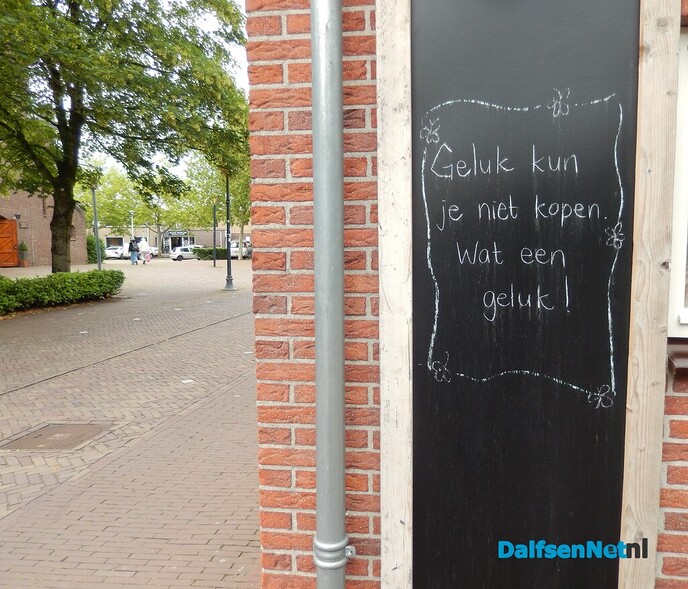 Geluk kun
je niet kopen.
Wat een
geluk!
DalfsenNetnl